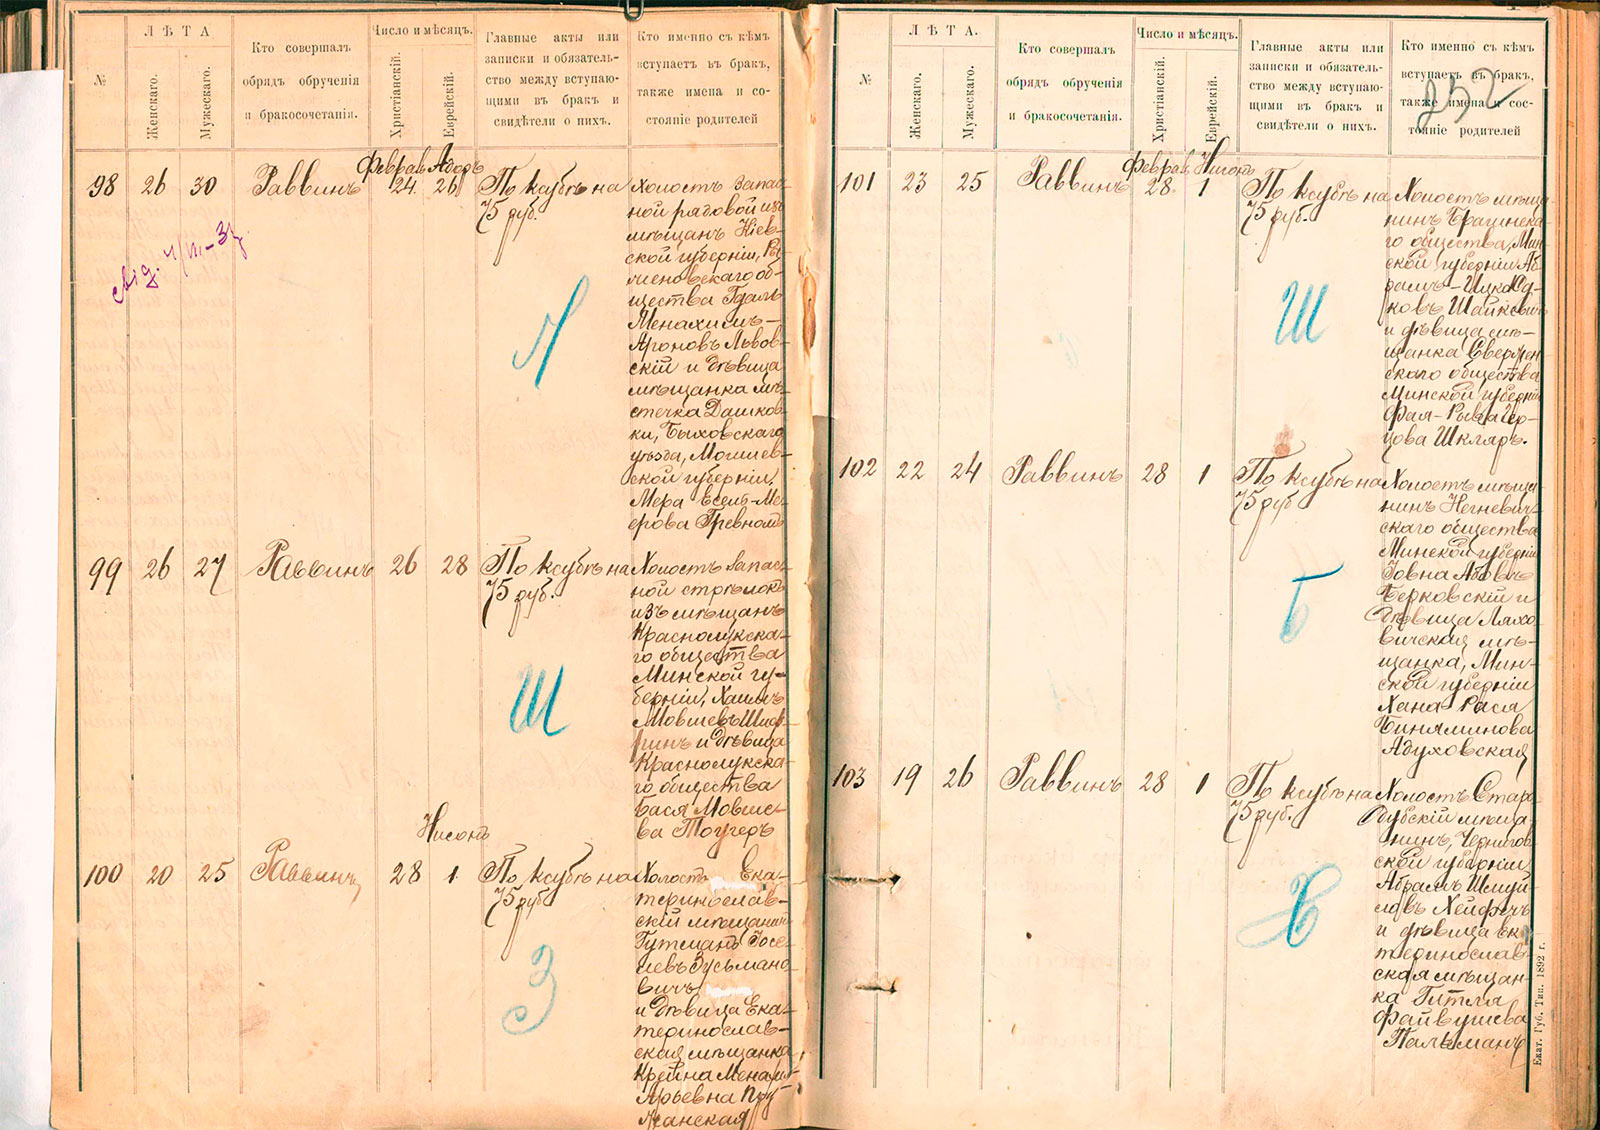 №
ЛѢТА
Женскаго.
Мужескаго.
Кто совершалъ
обрядъ обрученія
и бракосочетанія.
Число и мѣсяцъ.
Христіанскій.
Еврейскій.
Главные акты или
записки и обязатель-
ство между вступаю-
щими въ бракъ и
свидѣтели о нихъ.
Кто именно съ кѣмъ
вступаетъ въ бракъ,
также имена и со-
стояніе родителей
98 26 30 Раввинъ
Феврал. Адаръ
24 26
По ксубѣ на
75 руб.
Л
Холостъ запас-
ной рядовой изъ
мѣщанъ Кіев-
ской губерніи,
общества Гдаль
Менахимъ-
Ароновъ Львов-
скій и дѣвица
мѣщанка мѣ-
стечка Дашков-
ки, Быховскаго
уѣзда, Могилев-
ской губерніи,
Мера Есель-Ме-
ерова
99 26 27 Раввинъ 26 28
По ксубѣ на
75 руб.
Ш
Холостъ запас-
ной стрѣлокъ
изъ мѣщанъ
Краснолукска-
го общества
Минской гу-
берніи, Хаимъ
Мовшевъ Шиф-
ринъ и дѣвица
Краснолукска-
го общества
Бася Мовше-
ва
100 20 25 Раввинъ
Нисонъ
28 1
По ксубѣ на
75 руб.
З
Холостъ Ека-
теринослав-
скій мѣщанинъ
Гутманъ Іосе-
левъ Зусмано-
вичъ
и дѣвица Ека-
теринослав-
ская мѣщанка
Крейна
Пру-
жанская
252
№
ЛѢТА.
Женскаго.
Мужескаго.
Кто совершалъ
обрядъ обрученія
и бракосочетанія.
Число и мѣсяцъ.
Христіанскій.
Еврейскій.
Главные акты или
записки и обязатель-
ство между вступаю-
щими въ бракъ и
свидѣтели о нихъ.
Кто именно съ кѣмъ
вступаетъ въ бракъ,
также имена и сос-
тояніе родителей
101 23 25 Раввинъ
Феврал. Нисонъ
28 1
По ксубѣ на
75 руб.
Ш
Холостъ мѣща-
нинъ
го общества, Мин-
ской губерніи Аб-
рамъ-Ицко
Шайкевичъ
и дѣвица мѣ-
щанка Свержен-
скаго общества
Минской губерніи
Фая-Рыва Гер-
цова Шкляръ.
102 22 24 Раввинъ 28 1
По ксубѣ на
75 руб
Б
Холостъ мѣща-
нинъ Негневич-
скаго общества
Минской губерніи
Іовна Абовъ
Берковскій и
дѣвица Ляхо-
вичская мѣ-
щанка, Мин-
ской губерніи
Хана-Рася
Биняминова
Адуховская
103 19 26 Раввинъ 28 1
По ксубѣ на
75 руб.
Х
Холостъ Старо-
дубскій мѣща-
нинъ, Чернигов-
ской губерніи,
Абрамъ Шмуй-
ловъ Хейфечъ
и дѣвица Ека-
теринослав-
ская мѣщан-
ка Гитля
Файвушева
Пальманъ
Екат. Губ. Тип. 1892 г.